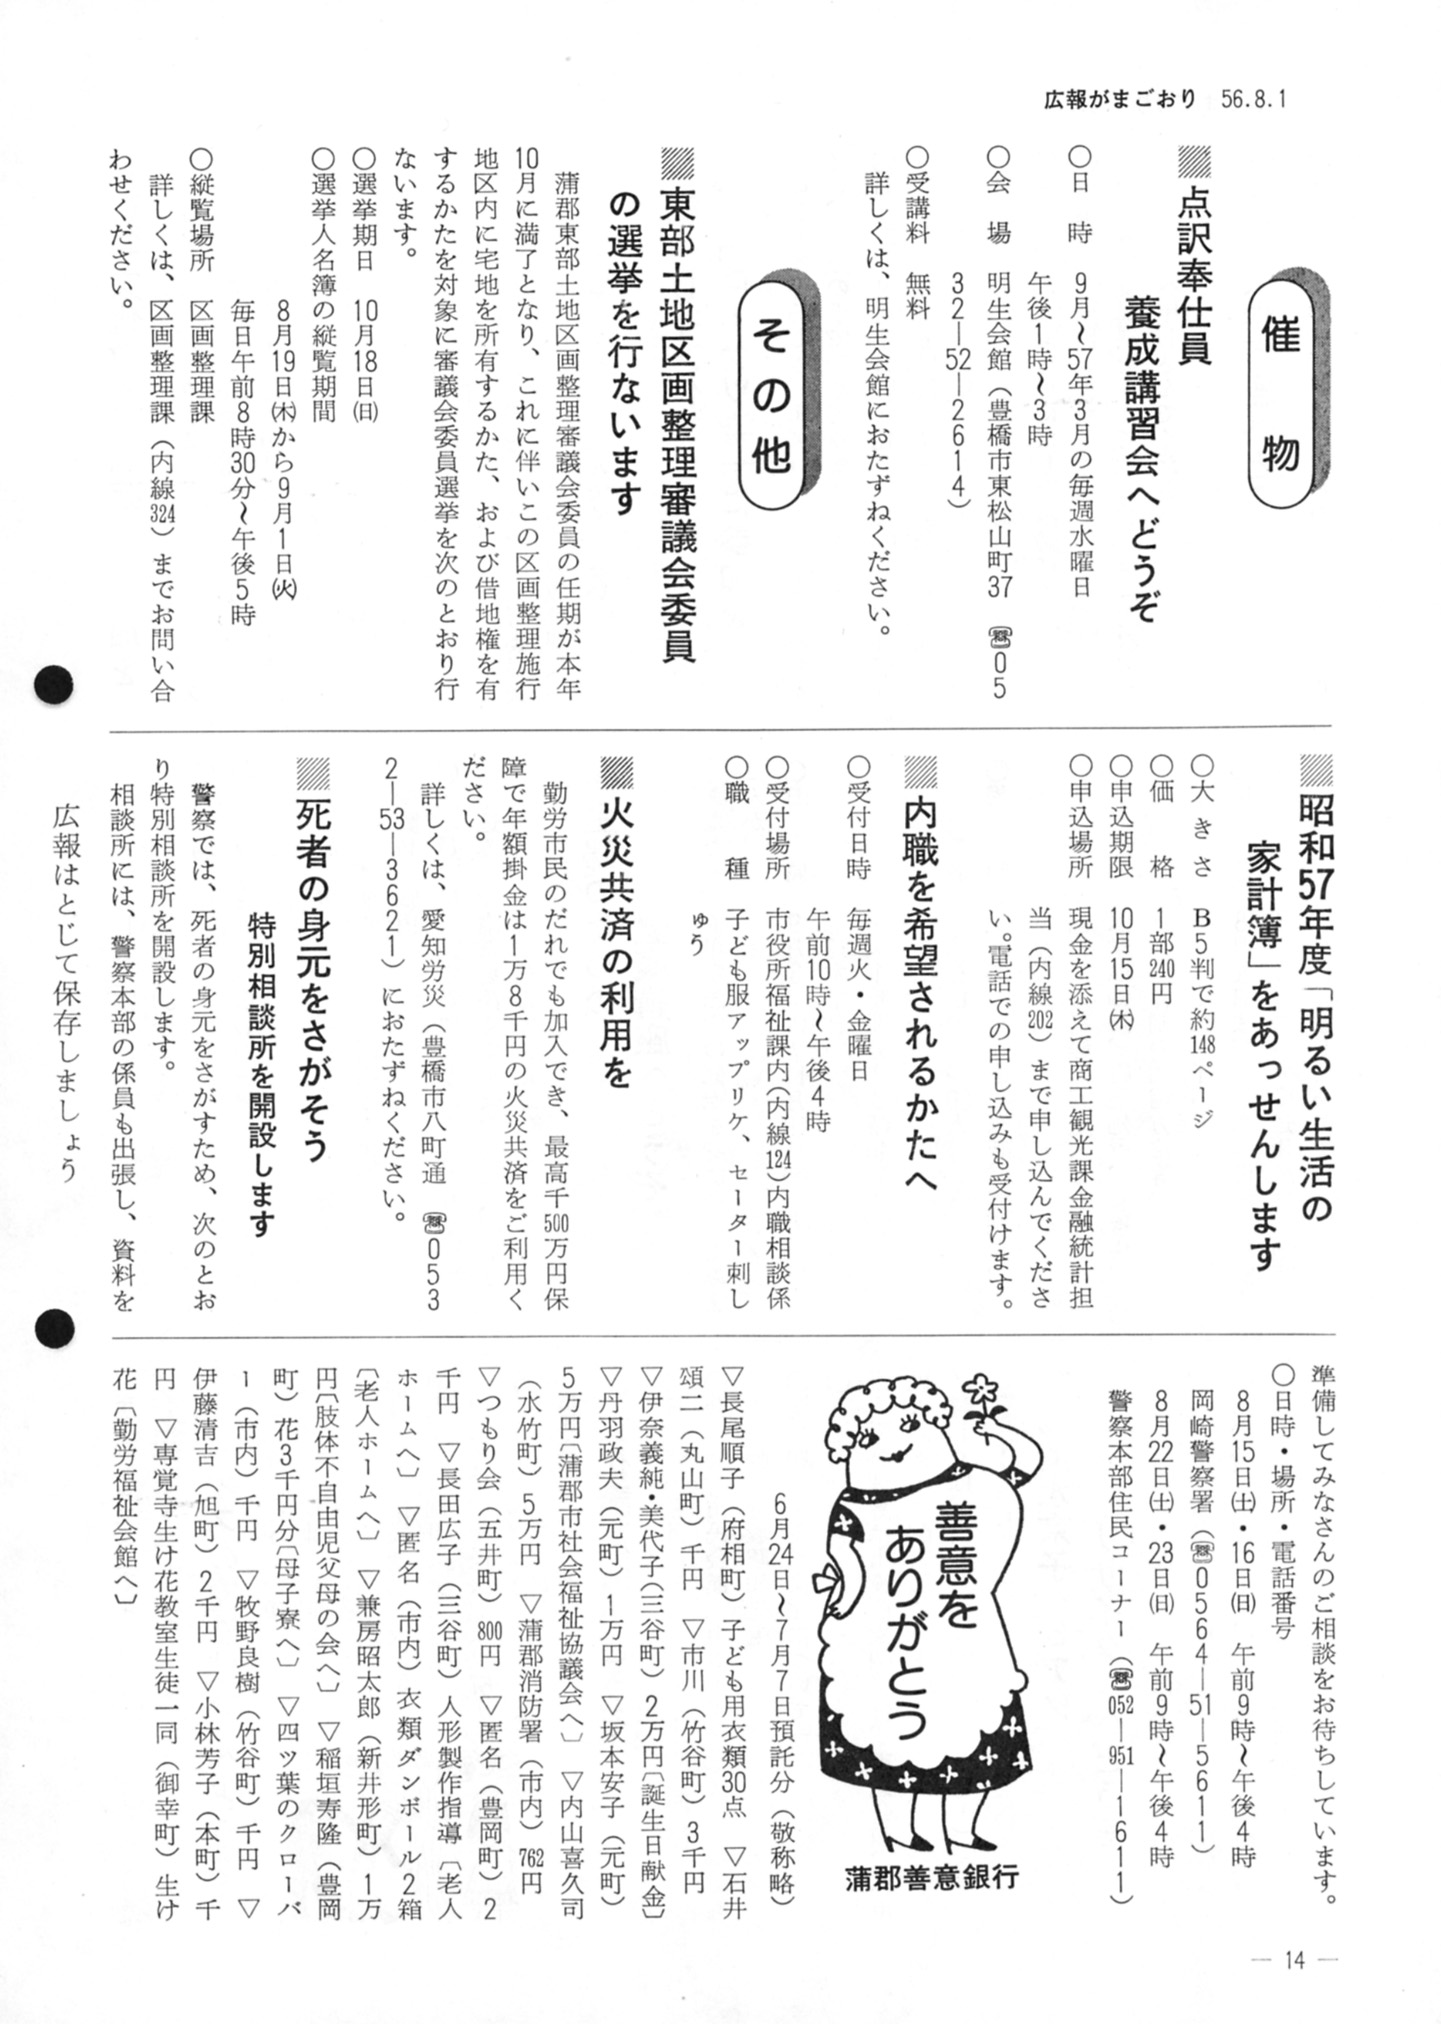 広報がまごおり 56.8.1
催物
点訳奉仕員
養成講習会へどうぞ
○日　時　9月〜57年3月の毎週水曜日
午後1時〜3時
○会　場　明生会館（豊橋市東松山町37　☎05
32―52―2614）
○受講料　無料
詳しくは、明生会館におたずねください。
その他
東部土地区画整理審議会委員
の選挙を行ないます
蒲郡東部土地区画整理審議会委員の任期が本年
10月に満了となり、これに伴いこの区画整理施行
地区内に宅地を所有するかた、および借地権を有
するかたを対象に審議会委員選挙を次のとおり行
ないます。
○選挙期日　10月18日㈰
○選挙人名簿の縦覧期間
8月19日㈭から9月1日㈫
毎日午前8時30分〜午後5時
○縦覧場所　区画整理課
詳しくは、区画整理課（内線324）までお問い合
わせください。
昭和57年度「明るい生活の
家計簿」をあっせんします
○大きさ　B5判で約148ページ
○価　格　1部240円
○申込期限　10月15日㈭
○申込場所　現金を添えて商工観光課金融統計担
当（内線202）まで申し込んでくださ
い。電話での申し込みも受付けます。
内職を希望されるかたへ
○受付日時　毎週火・金曜日
午前10時〜午後4時
○受付場所　市役所福祉課内（内線124）内職相談係
○職　種　子ども服アップリケ、セーター刺し
ゅう
火災共済の利用を
勤労市民のだれでも加入でき、最高千500万円保
障で年額掛金は1万8千円の火災共済をご利用く
ださい。
詳しくは、愛知労災（豊橋市八町通　☎053
2―53―3621）におたずねください。
死者の身元をさがそう
特別相談所を開設します
警察では、死者の身元をさがすため、次のとお
り特別相談所を開設します。
相談所には、警察本部の係員も出張し、資料を
広報はとじて保存しましょう
準備してみなさんのご相談をお待ちしています。
○日時・場所・電話番号
8月15日㈯・16日㈰　午前9時〜午後4時
岡崎警察署（☎0564―51―5611）
8月22日㈯・23日㈰　午前9時〜午後4時
警察本部住民コーナー（☎052―951―1611）
善意を
ありがとう
蒲郡善意銀行
6月24日〜7月7日預託分（敬称略）
▽長尾順子（府相町）子ども用衣類30点　▽石井
頌二（丸山町）千円　▽市川（竹谷町）3千円
▽伊奈義純・美代子（三谷町）2万円〔誕生日献金〕
▽丹羽政夫（元町）1万円　▽坂本安子（元町）
5万円〔蒲郡市社会福祉協議会へ〕　▽内山喜久司
（水竹町）5万円　▽蒲郡消防署（市内）762円
▽つもり会（五井町）800円　▽匿名（豊岡町）2
千円　▽長田広子（三谷町）人形製作指導〔老人
ホームへ〕　▽匿名（市内）衣類ダンボール2箱
〔老人ホームへ〕　▽兼房昭太郎（新井形町）1万
円〔肢体不自由児父母の会へ〕　▽稲垣寿隆（豊岡
町）花3千円分〔母子寮へ〕　▽四ツ葉のクローバ
ー（市内）千円　▽牧野良樹（竹谷町）千円　▽
伊藤清吉（旭町）2千円　▽小林芳子（本町）千
円　▽専覚寺生け花教室生徒一同（御幸町）生け
花〔勤労福祉会館へ〕
― 14 ―